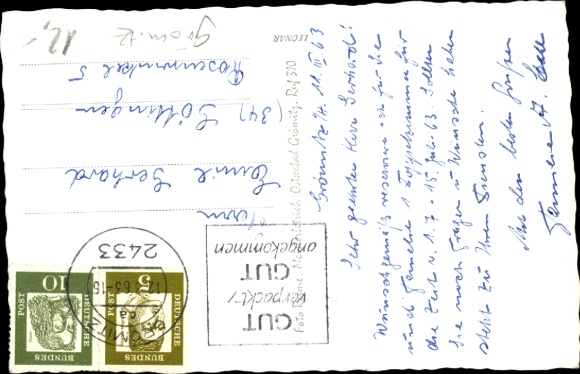 Grömitz/H. 11. III 63
Sehr geehrter Herr Gerhard!
Wunschgemäß reserviere ich für Sie
und Familie 1 Doppelzimmer für
die Zeit v. 1.7. - 15. Juli 63. Sollten
Sie noch Fragen u. Wünsche haben
steht zu Ihren Diensten.
Mit den besten Grüßen
Familie A.
Foto
Ostseebad Grömitz, Ruf 310
LEONAR
Grömitz
12,-
Herrn
Emil Gerhard
(34) Göttingen
Rosenwinkel 5
GUT
verpackt/
GUT
angekommen
2433
GRÖMITZ
12.3.63-15
DEUTSCHE
BUNDES
POST
5
DEUTSCHE
BUNDES
POST
10